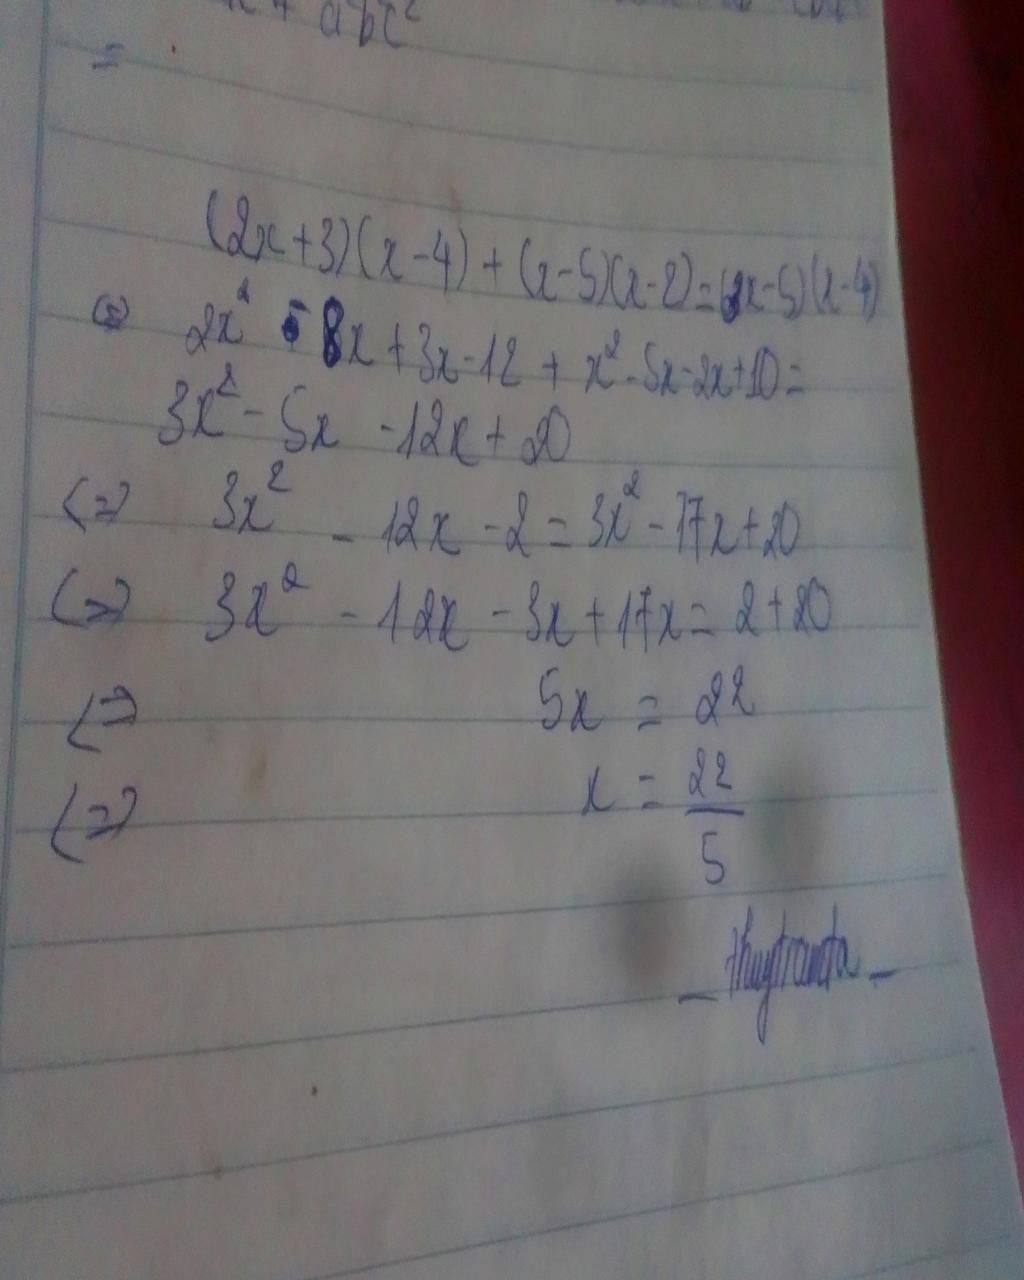 abc²
=
(2x+3)(x-4)+(x-5)(x-2)=(3x-5)(x-4)
(=) 2x² - 8x + 3x - 12 + x² - 5x - 2x + 10 =
3x² - 5x - 12x + 20
(=) 3x² - 12x - 2 = 3x² - 17x + 20
(=) 3x² - 12x - 3x + 17x = 2 + 20
(=) 5x = 22
(=) x = 22/5